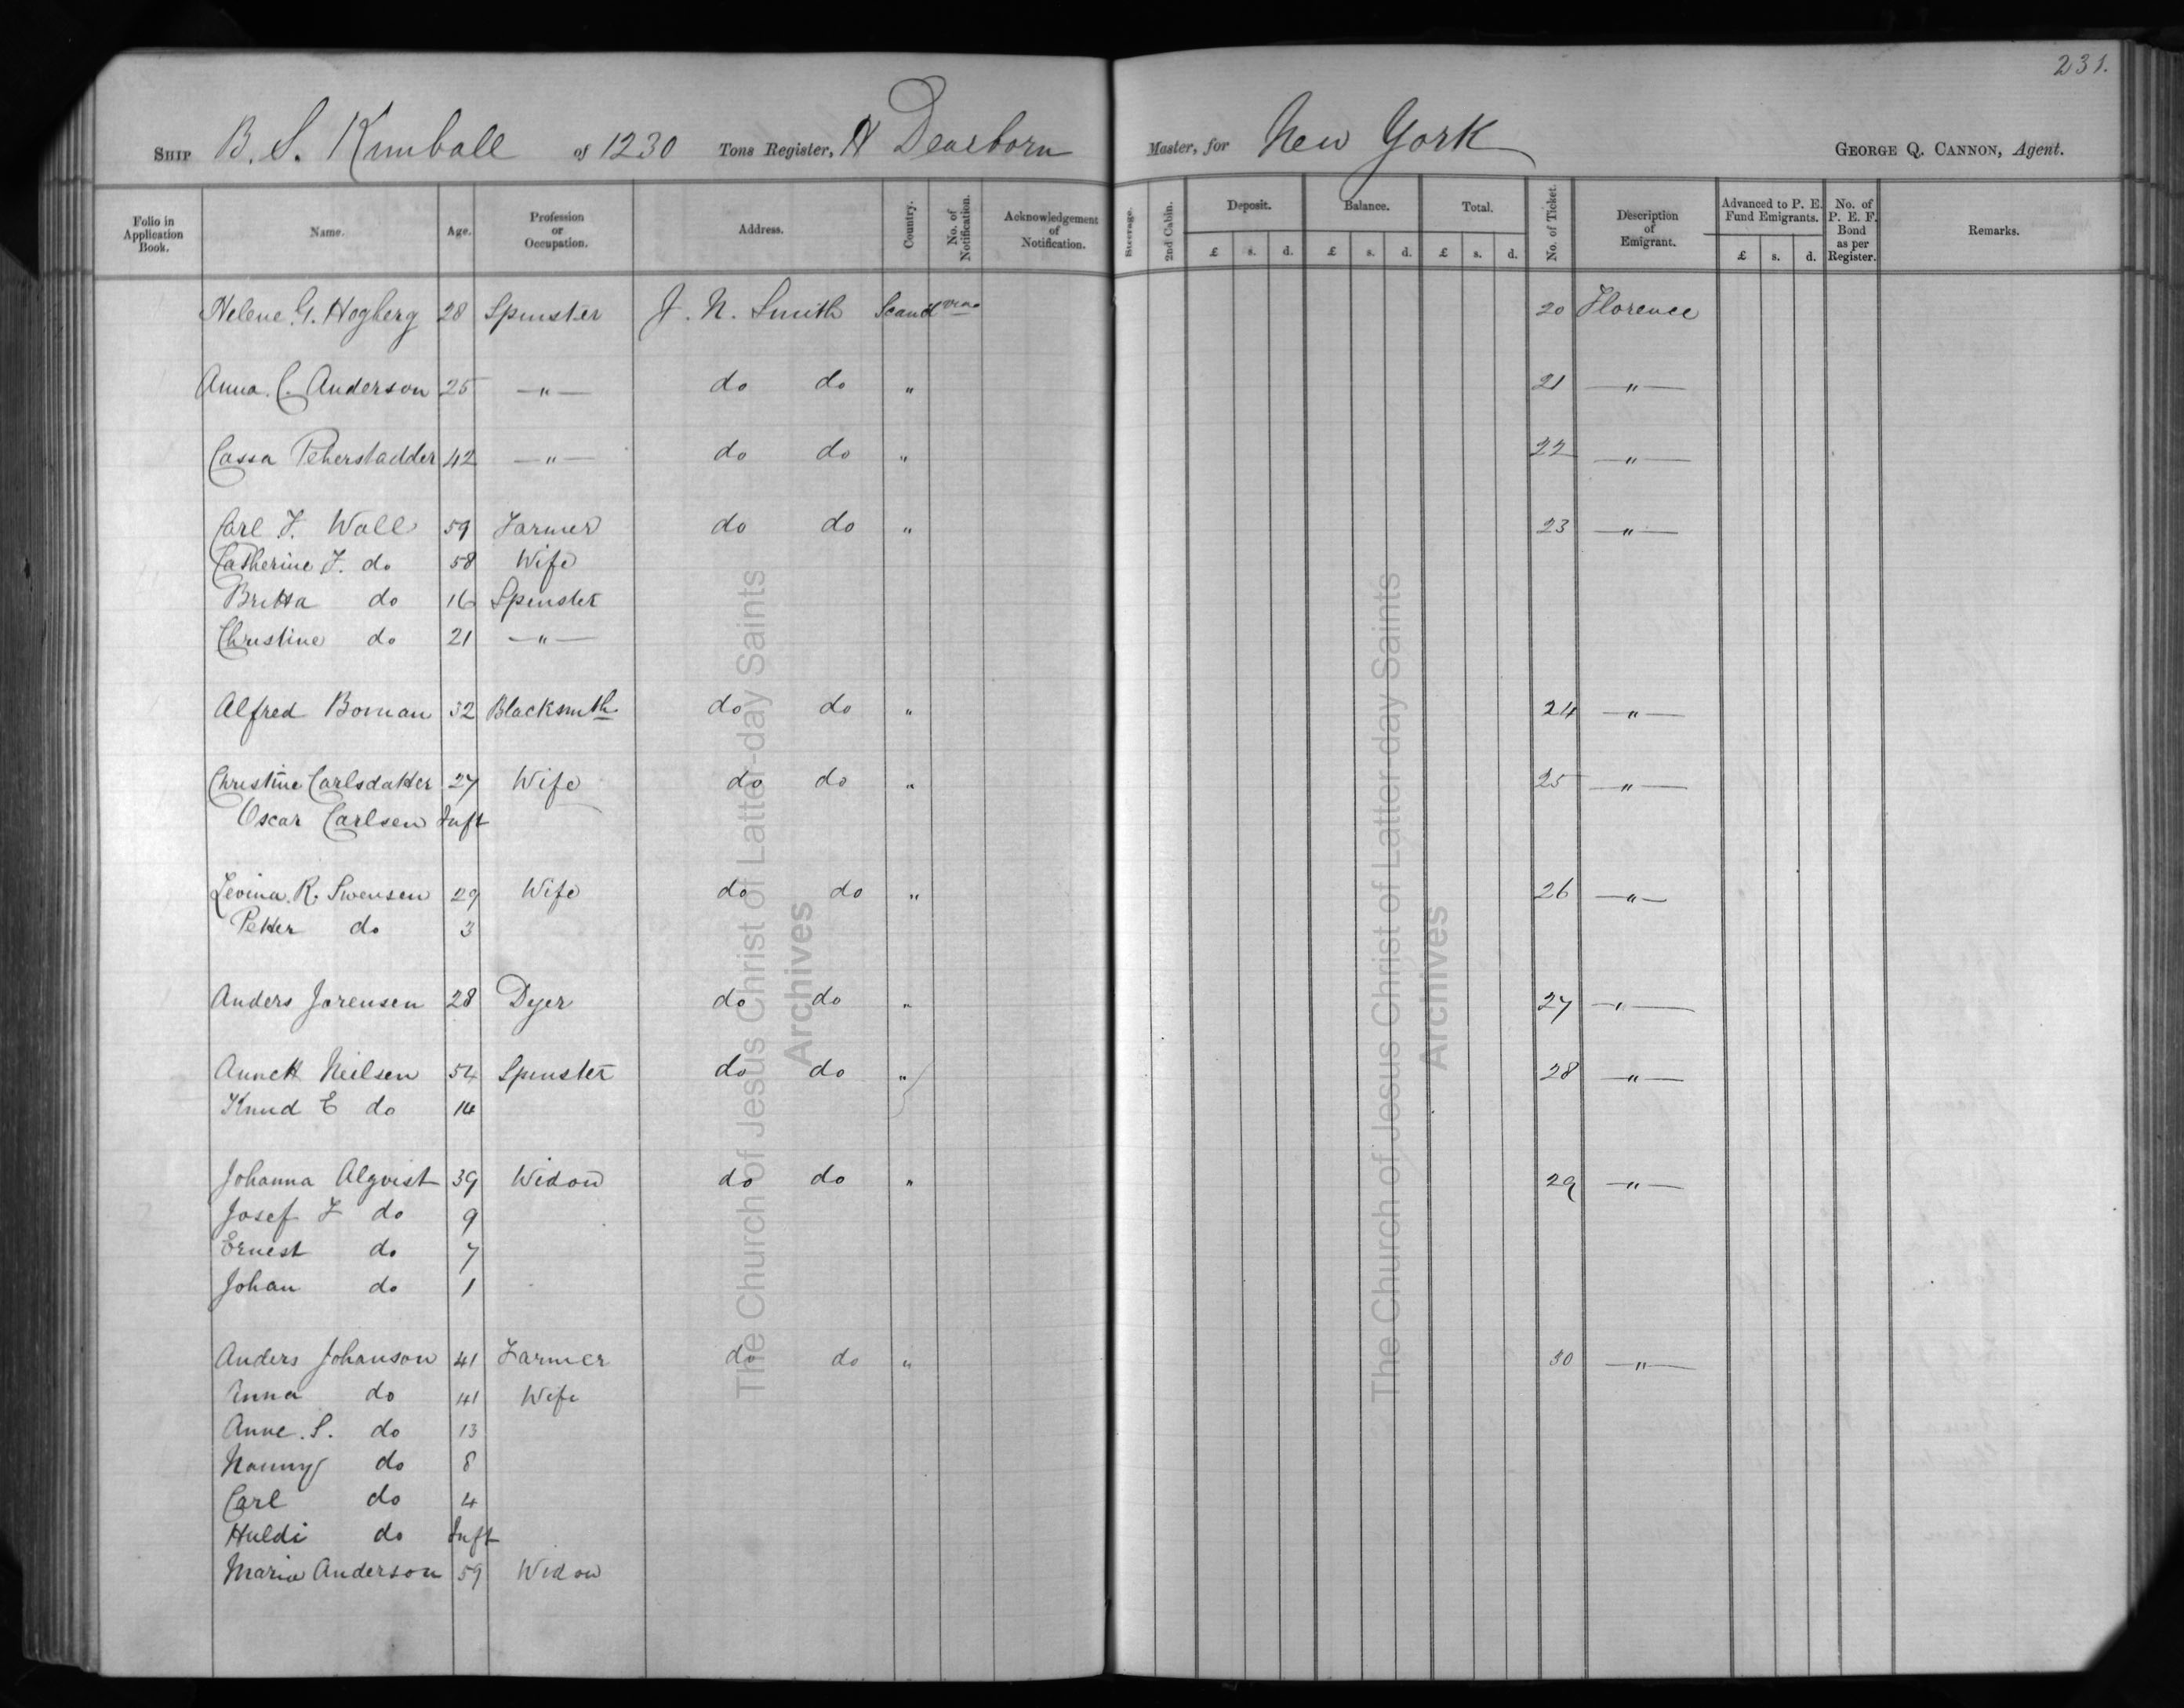 231.
SHIP B. S. Kimball of 1230 Tons Register, H Dearborn Master, for New York GEORGE Q. CANNON, Agent.
Folio in Application Book. Name. Age. Profession or Occupation. Address. Country. No. of Notification. Acknowledgement of Notification. Steerage. 2nd Cabin. Deposit. Balance. Total. No. of Ticket. Description of Emigrant. Advanced to P. E. Fund Emigrants. No. of P. E. F. Bond as per Register. Remarks.
£ s. d. £ s. d. £ s. d. £ s. d.
Helene G. Hogberg 28 Spinster J. N. Smith Scandvna 20 Florence
Anna C. Anderson 25 —"— do do " 21 —"—
Cassa Peherstadder 42 —"— do do " 22 —"—
Carl F. Wall 59 Farmer do do " 23 —"—
Catherine F. do 58 Wife
Britta do 16 Spinster
Christine do 21 —"—
Alfred Boman 32 Blacksmith do do " 24 —"—
Christine Carlsdatter 27 Wife do do " 25 —"—
Oscar Carlsen Inft
Levina R. Swensen 29 Wife do do " 26 —"—
Petter do 3
Anders Jorensen 28 Dyer do do " 27 —"—
Annett Nielsen 54 Spinster do do " 28 —"—
Knud E do 14
Johanna Alqvist 39 Widow do do " 29 —"—
Josef F do 9
Ernest do 7
Johan do 1
Anders Johanson 41 Farmer do do " 30 —"—
Anna do 41 Wife
Anne. S. do 13
Nanny do 8
Carl do 4
Huldi do Inft
Maria Anderson 59 Widow
The Church of Jesus Christ of Latter-day Saints
Archives
The Church of Jesus Christ of Latter-day Saints
Archives